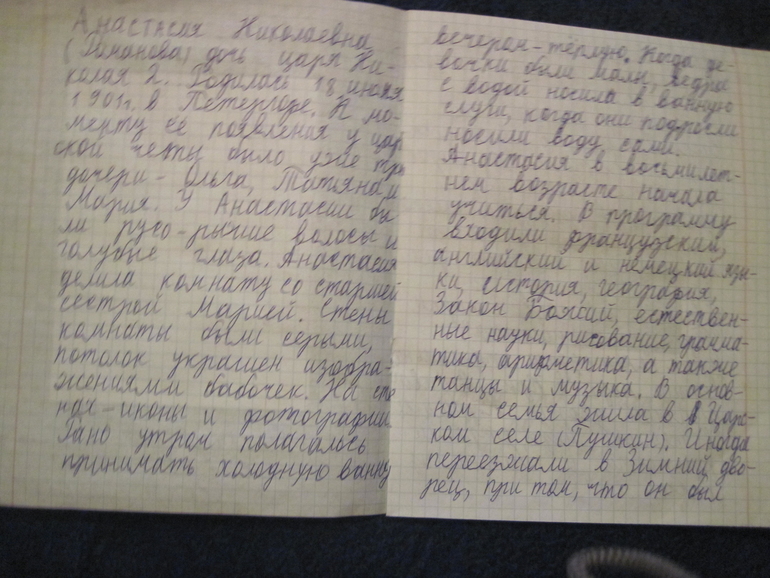 Анастасия Николаевна
(Романова) дочь царя Ни-
колая 2. Родилась 18 июня
1901г. в Петергофе. К мо-
менту её появления у цар
ской четы было уже три
дочери - Ольга, Татьяна и
Мария. У Анастасии бы
ли русо-рыжие волосы и
голубые глаза. Анастасия
делила комнату со старшей
сестрой Марией. Стены
комнаты были серыми,
потолок украшен изобра-
жениями бабочек. На сте
нах - иконы и фотографии
Рано утром полагалось
принимать холодную ванну
вечером - тёплую. Когда де-
вочки были малы, вёдра
с водой носила в ванную
слуги, когда они подросли
носили воду сами.
Анастасия в восьмилет-
нем возрасте начала
учиться. В программу
входили французский,
английский и немецкий язы-
ки, история, география,
Закон Божий, естествен-
ные науки, рисование, грамма-
тика, арифметика, а также
танцы и музыка. В основ-
ном семья жила в в Царс-
ком селе (Пушкин). Иногда
переезжали в Зимний дво-
рец, при том, что он был